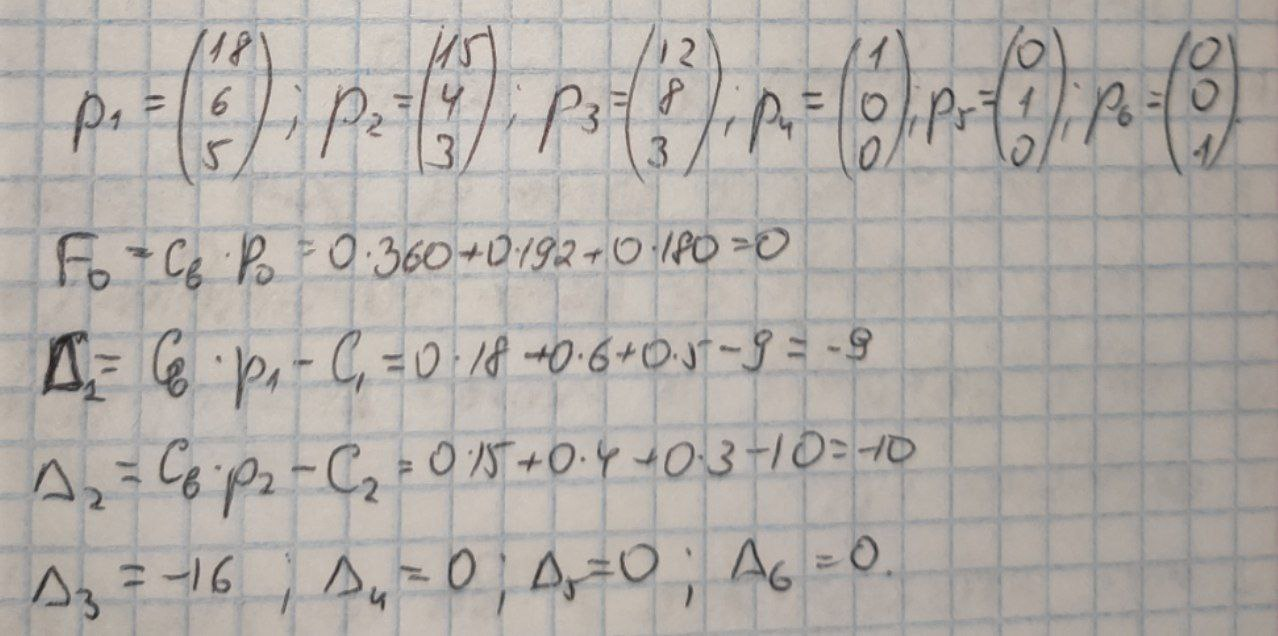 p₁ = (18 6 5); p₂ = (15 4 3); p₃ = (12 8 3); p₄ = (1 0 0); p₅ = (0 1 0); p₆ = (0 0 1).
F₀ = C_б · P₀ = 0·360+0·192+0·180=0
Δ₁ = C_б · p₁ - C₁ = 0·18+0·6+0·5-9=-9
Δ₂ = C_б · p₂ - C₂ = 0·15+0·4+0·3-10=-10
Δ₃ = -16 ; Δ₄ = 0 ; Δ₅ = 0 ; Δ₆ = 0.